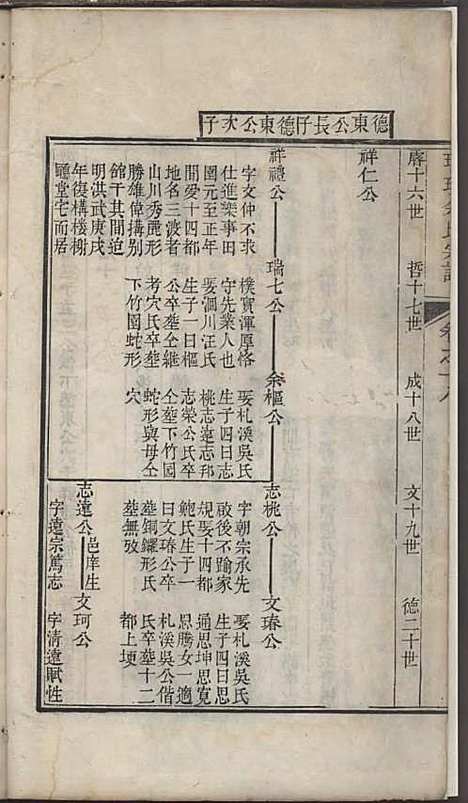 德東公長子
德東公次子
睿十六世　哲十七世　成十八世　文十九世　德二十世
祥仁公
祥禮公
字文仲不求
仕進樂事田
園元至正年
間愛十四都
地名三渡者
山川秀麗形
勝雄偉搆别
館于其間迨
明洪武庚戌
年復構樓樹
廳堂宅而居
瑞七公
樸實渾厚恪
守先業人也
娶涸川汪氏
生子一日樞
公卒塟仝繼
考穴氏卒塟
下竹園蛇形
余樞公
娶札溪吳氏
生子四日志
桃志遠志邦
志榮公氏卒
仝塟下竹園
蛇形與母仝
穴
志桃公
字朝宗承先
啟後不踰家
規娶十四都
鮑氏生子一
日文瑃公卒
塟銅鑼形氏
塟無攷
文瑃公
娶札溪吳氏
生子四日思
通思坤思寛
思騰女一適
札溪吳公偕
氏卒塟十二
都上坑
志遠公邑庠生
字遠宗篤志
文珂公
字清遠賦性